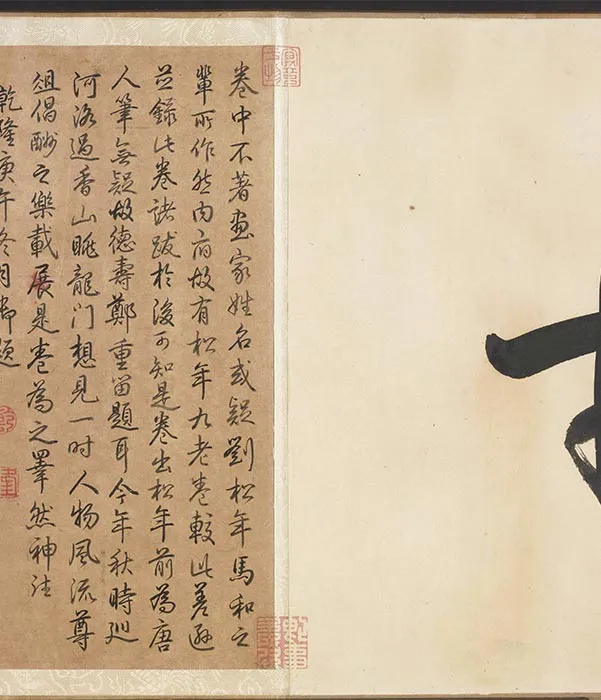 卷中不著畫家姓名或疑劉松年馬和之
輩所作然内府故有松年九老卷較此差遜
並錄此卷諸跋於後可知是卷出松年前為唐
人筆無疑故德壽鄭重留題耳今年秋時巡
河洛過香山眺龍门想見一时人物風流尊
俎倡酬之樂載展是卷為之睪然神往
乾隆庚午冬月御題